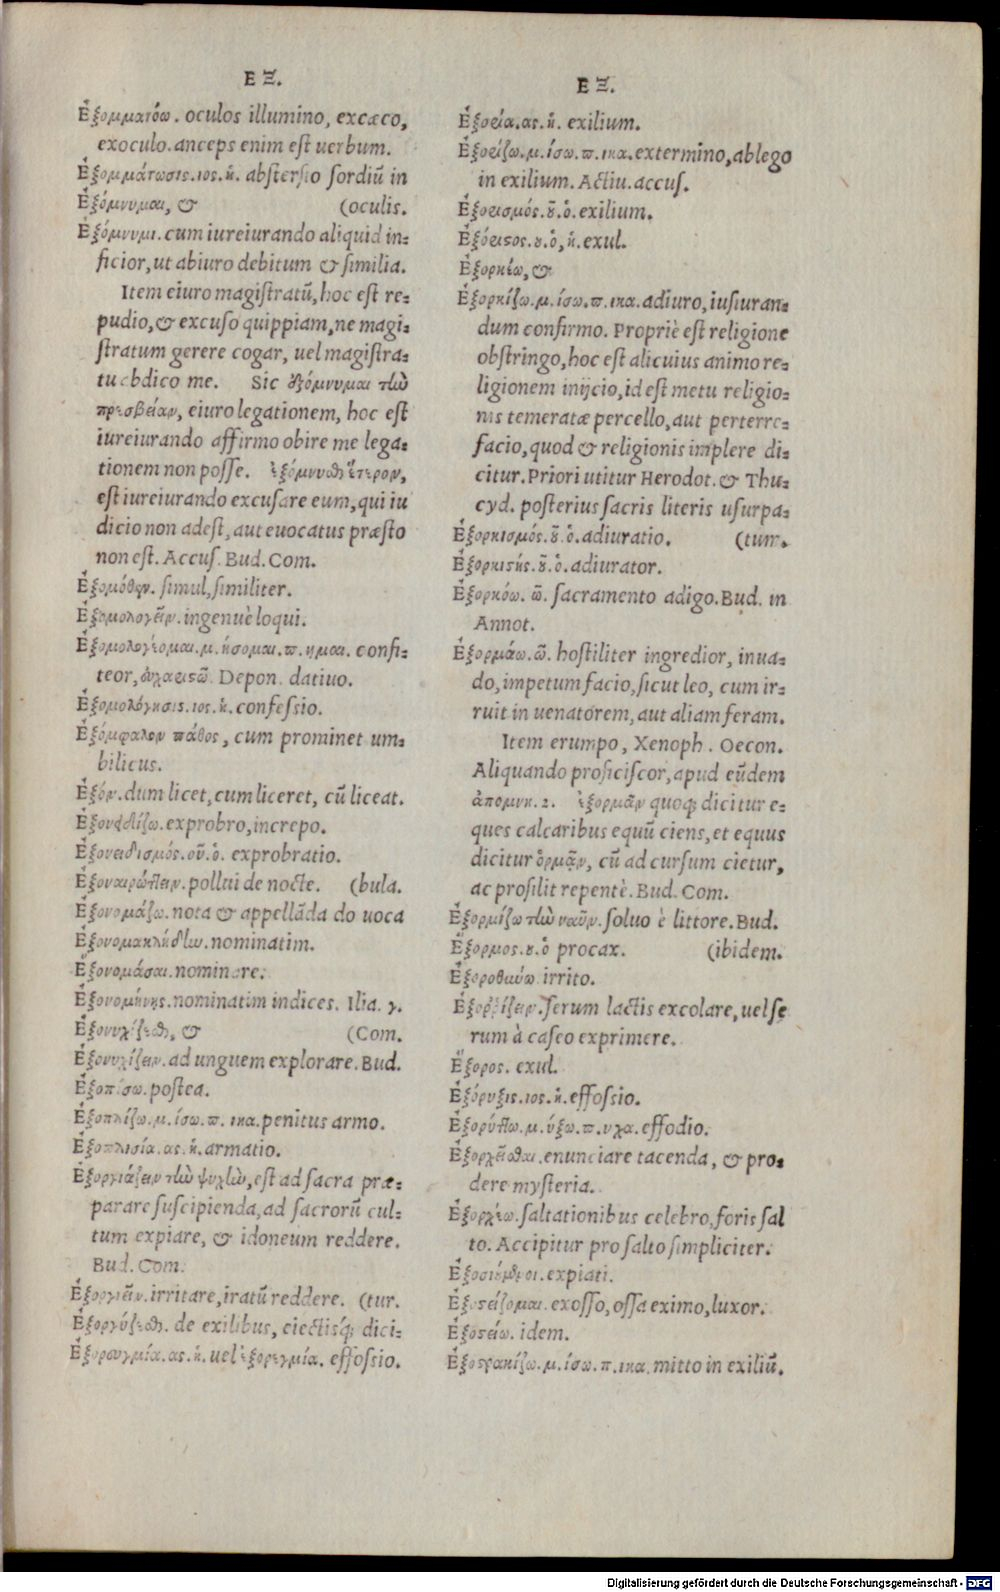 ΕΞ.
Ἐξομματόω. oculos illumino, excæco,
exoculo. anceps enim eſt uerbum.
Ἐξομμάτωσις. ιος. ἡ. abſterſio ſordiū in
Ἐξόμνυμαι, & (oculis.
Ἐξόμνυμι. cum iureiurando aliquid in-
ficior, ut abiuro debitum & ſimilia.
Item eiuro magiſtratū, hoc eſt re-
pudio, & excuſo quippiam, ne magi-
ſtratum gerere cogar, uel magiſtra-
tu abdico me. Sic ἐξόμνυμαι τὼ
πρεσβείαν, eiuro legationem, hoc eſt
iureiurando affirmo obire me lega-
tionem non poſſe. ἐξόμνυσθ ἕτερον,
eſt iureiurando excuſare eum, qui iu
dicio non adeſt, aut euocatus præſto
non eſt. Accuſ. Bud. Com.
Ἐξομόθεν. ſimul, ſimiliter.
Ἐξομολογεῖν. ingenuè loqui.
Ἐξομολογέομαι. μ. ήσομαι. π. ημαι. confi-
teor, εὐχαριστῶ. Depon. datiuo.
Ἐξομολόγησις. ιος. ἡ. confeſſio.
Ἐξόμφαλον πάθος, cum prominet um-
bilicus.
Ἐξόν. dum licet, cum liceret, cū liceat.
Ἐξονειδίζω. exprobro, increpo.
Ἐξονειδισμός. οῦ. ὁ. exprobratio.
Ἐξονειρώττειν. pollui de nocte. (bula.
Ἐξονομάζω. nota & appellāda do uoca
Ἐξονομακλήδω. nominatim.
Ἐξονομάσαι. nominare.
Ἐξονομήνῃς. nominatim indices. Ilia. γ.
Ἐξονυχίζεσθ, & (Com.
Ἐξονυχίζειν. ad unguem explorare. Bud.
Ἐξοπίσω. poſtea.
Ἐξοπλίζω. μ. ίσω. π. ικα. penitus armo.
Ἐξοπλισία. ας. ἡ. armatio.
Ἐξοργιάζειν τὼ ψυχὼ, eſt ad ſacra præ-
parare ſuſcipienda, ad ſacrorū cul-
tum expiare, & idoneum reddere.
Bud. Com.
Ἐξοργιεῖν. irritare, iratū reddere. (tur.
Ἐξοργύζεσθ. de exilibus, eiectisq́; dici-
Ἐξορευγμία. ας. ἡ. uel ἐξορεγμία. effoſſio.
ΕΞ.
Ἐξορία. ας. ἡ. exilium.
Ἐξορίζω. μ. ίσω. π. ικα. extermino, ablego
in exilium. Actiu. accuſ.
Ἐξορισμός. ȣ̃. ὁ. exilium.
Ἐξόριστος. ȣ. ὁ, ἡ. exul.
Ἐξορκέω, &
Ἐξορκίζω. μ. ίσω. π. ικα. adiuro, iuſiuran-
dum confirmo. Propriè eſt religione
obſtringo, hoc eſt alicuius animo re-
ligionem inijcio, id eſt metu religio-
nis temeratæ percello, aut perterre-
facio, quod & religionis implere di-
citur. Priori utitur Herodot. & Thu-
cyd. poſterius ſacris literis uſurpa-
Ἐξορκισμός. ȣ̃. ὁ. adiuratio. (tum.
Ἐξορκιστής. ȣ̃. ὁ. adiurator.
Ἐξορκόω. ῶ. ſacramento adigo. Bud. in
Annot.
Ἐξορμάω. ῶ. hoſtiliter ingredior, inua-
do, impetum facio, ſicut leo, cum ir-
ruit in uenatorem, aut aliam feram.
Item erumpo, Xenoph. Oecon.
Aliquando proficiſcor, apud eūdem
ἀπομνη. 2. ἐξορμᾶν quoq; dicitur e-
ques calcaribus equū ciens, et equus
dicitur ὁρμᾷν, cū ad curſum cietur,
ac proſilit repentè. Bud. Com.
Ἐξορμίζω τὼ ναῦν. ſoluo è littore. Bud.
Ἔξορμος. ȣ. ὁ procax. (ibidem.
Ἐξοροθύνω. irrito.
Ἐξοῤῥίζειν. ſerum lactis excolare, uel ſe
rum à caſeo exprimere.
Ἔξορος. exul.
Ἐξόρυξις. ιος. ἡ. effoſſio.
Ἐξορύττω. μ. ύξω. π. υχα. effodio.
Ἐξορχεῖσθαι. enunciare tacenda, & pro-
dere myſteria.
Ἐξορχέω. ſaltationibus celebro, foris ſal
to. Accipitur pro ſalto ſimpliciter.
Ἐξοσιύμενοι. expiati.
Ἐξοστείζομαι. exoſſo, oſſa eximo, luxor.
Ἐξοστείω. idem.
Ἐξοστρακίζω. μ. ίσω. π. ικα. mitto in exiliū.
Digitalisierung gefördert durch die Deutsche Forschungsgemeinschaft - DFG